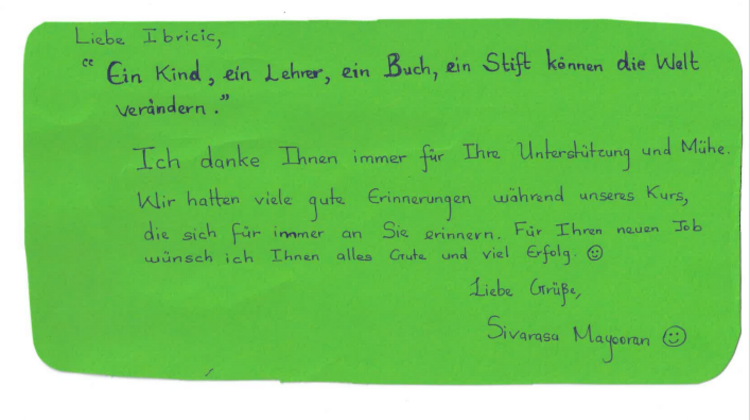 Liebe Ibricic,
"Ein Kind, ein Lehrer, ein Buch, ein Stift können die Welt
verändern."
Ich danke Ihnen immer für Ihre Unterstützung und Mühe.
Wir hatten viele gute Erinnerungen während unseres Kurs,
die sich für immer an Sie erinnern. Für Ihren neuen Job
wünsch ich Ihnen alles Gute und viel Erfolg. ☺
Liebe Grüße,
Sivarasa Mayooran ☺